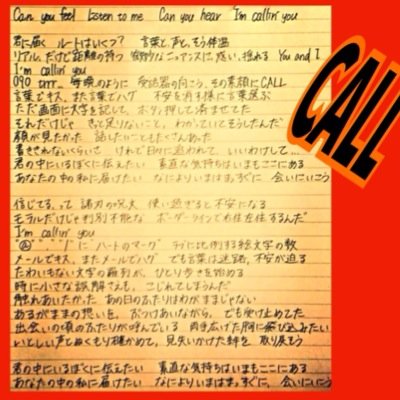 Can you feel Listen to me Can you hear I'm callin' you
君に届く ルートはいくつ? 言葉と、声と、そう体温
リアル、だけど距離の持つ 微妙なニュアンスに惑い、揺れる You and I
I'm callin' you
090 毎晩のように 受話器の向こう、その素顔にCALL
言葉でキス、また言葉でハグ 不安を消す様に言葉選ぶ
ただ画面に文字を記して、ボタン押して済ませてた
それだけじゃ きっと足りないこと、わかっていてそうしたんだ
顔が見たかった、話したいこともたくさんあった
書ききれないくらいで けれど日々に追われて、いいわけして…
君の中にいるぼくに伝えたい 素直な気持ちはいまもここにある
あなたの中の私に届けたい なによりいまはまっすぐに、会いにいこう
信じてる、って諸刃の呪文 使い過ぎると不安になる
モラルだけじゃ判別不能な ボーダーラインで右往左往するんだ
I'm callin' you
"に"ハートのマーク" に比例する絵文字の数
メールでキス、またメールでハグ でも言葉は迷路、不安が迫る
たわいもない文字の羅列が、ひとり歩きを始める
時に小さな誤解さえも、こじれてしまうんだ
触れあいたかった あの日のふたりはわがままじゃない
あるがままの想いを、ぶつけあいながら、でも受け止めてた
出会いの頃のふたりが呼んでいる 両手広げた胸に飛び込みたい
いとしい声とぬくもり確かめて、見失いかけた絆を 取り戻そう
君の中にいるぼくに伝えたい 素直な気持ちはいまもここにある
あなたの中の私に届けたい なによりいまはまっすぐに、会いにいこう
CALL